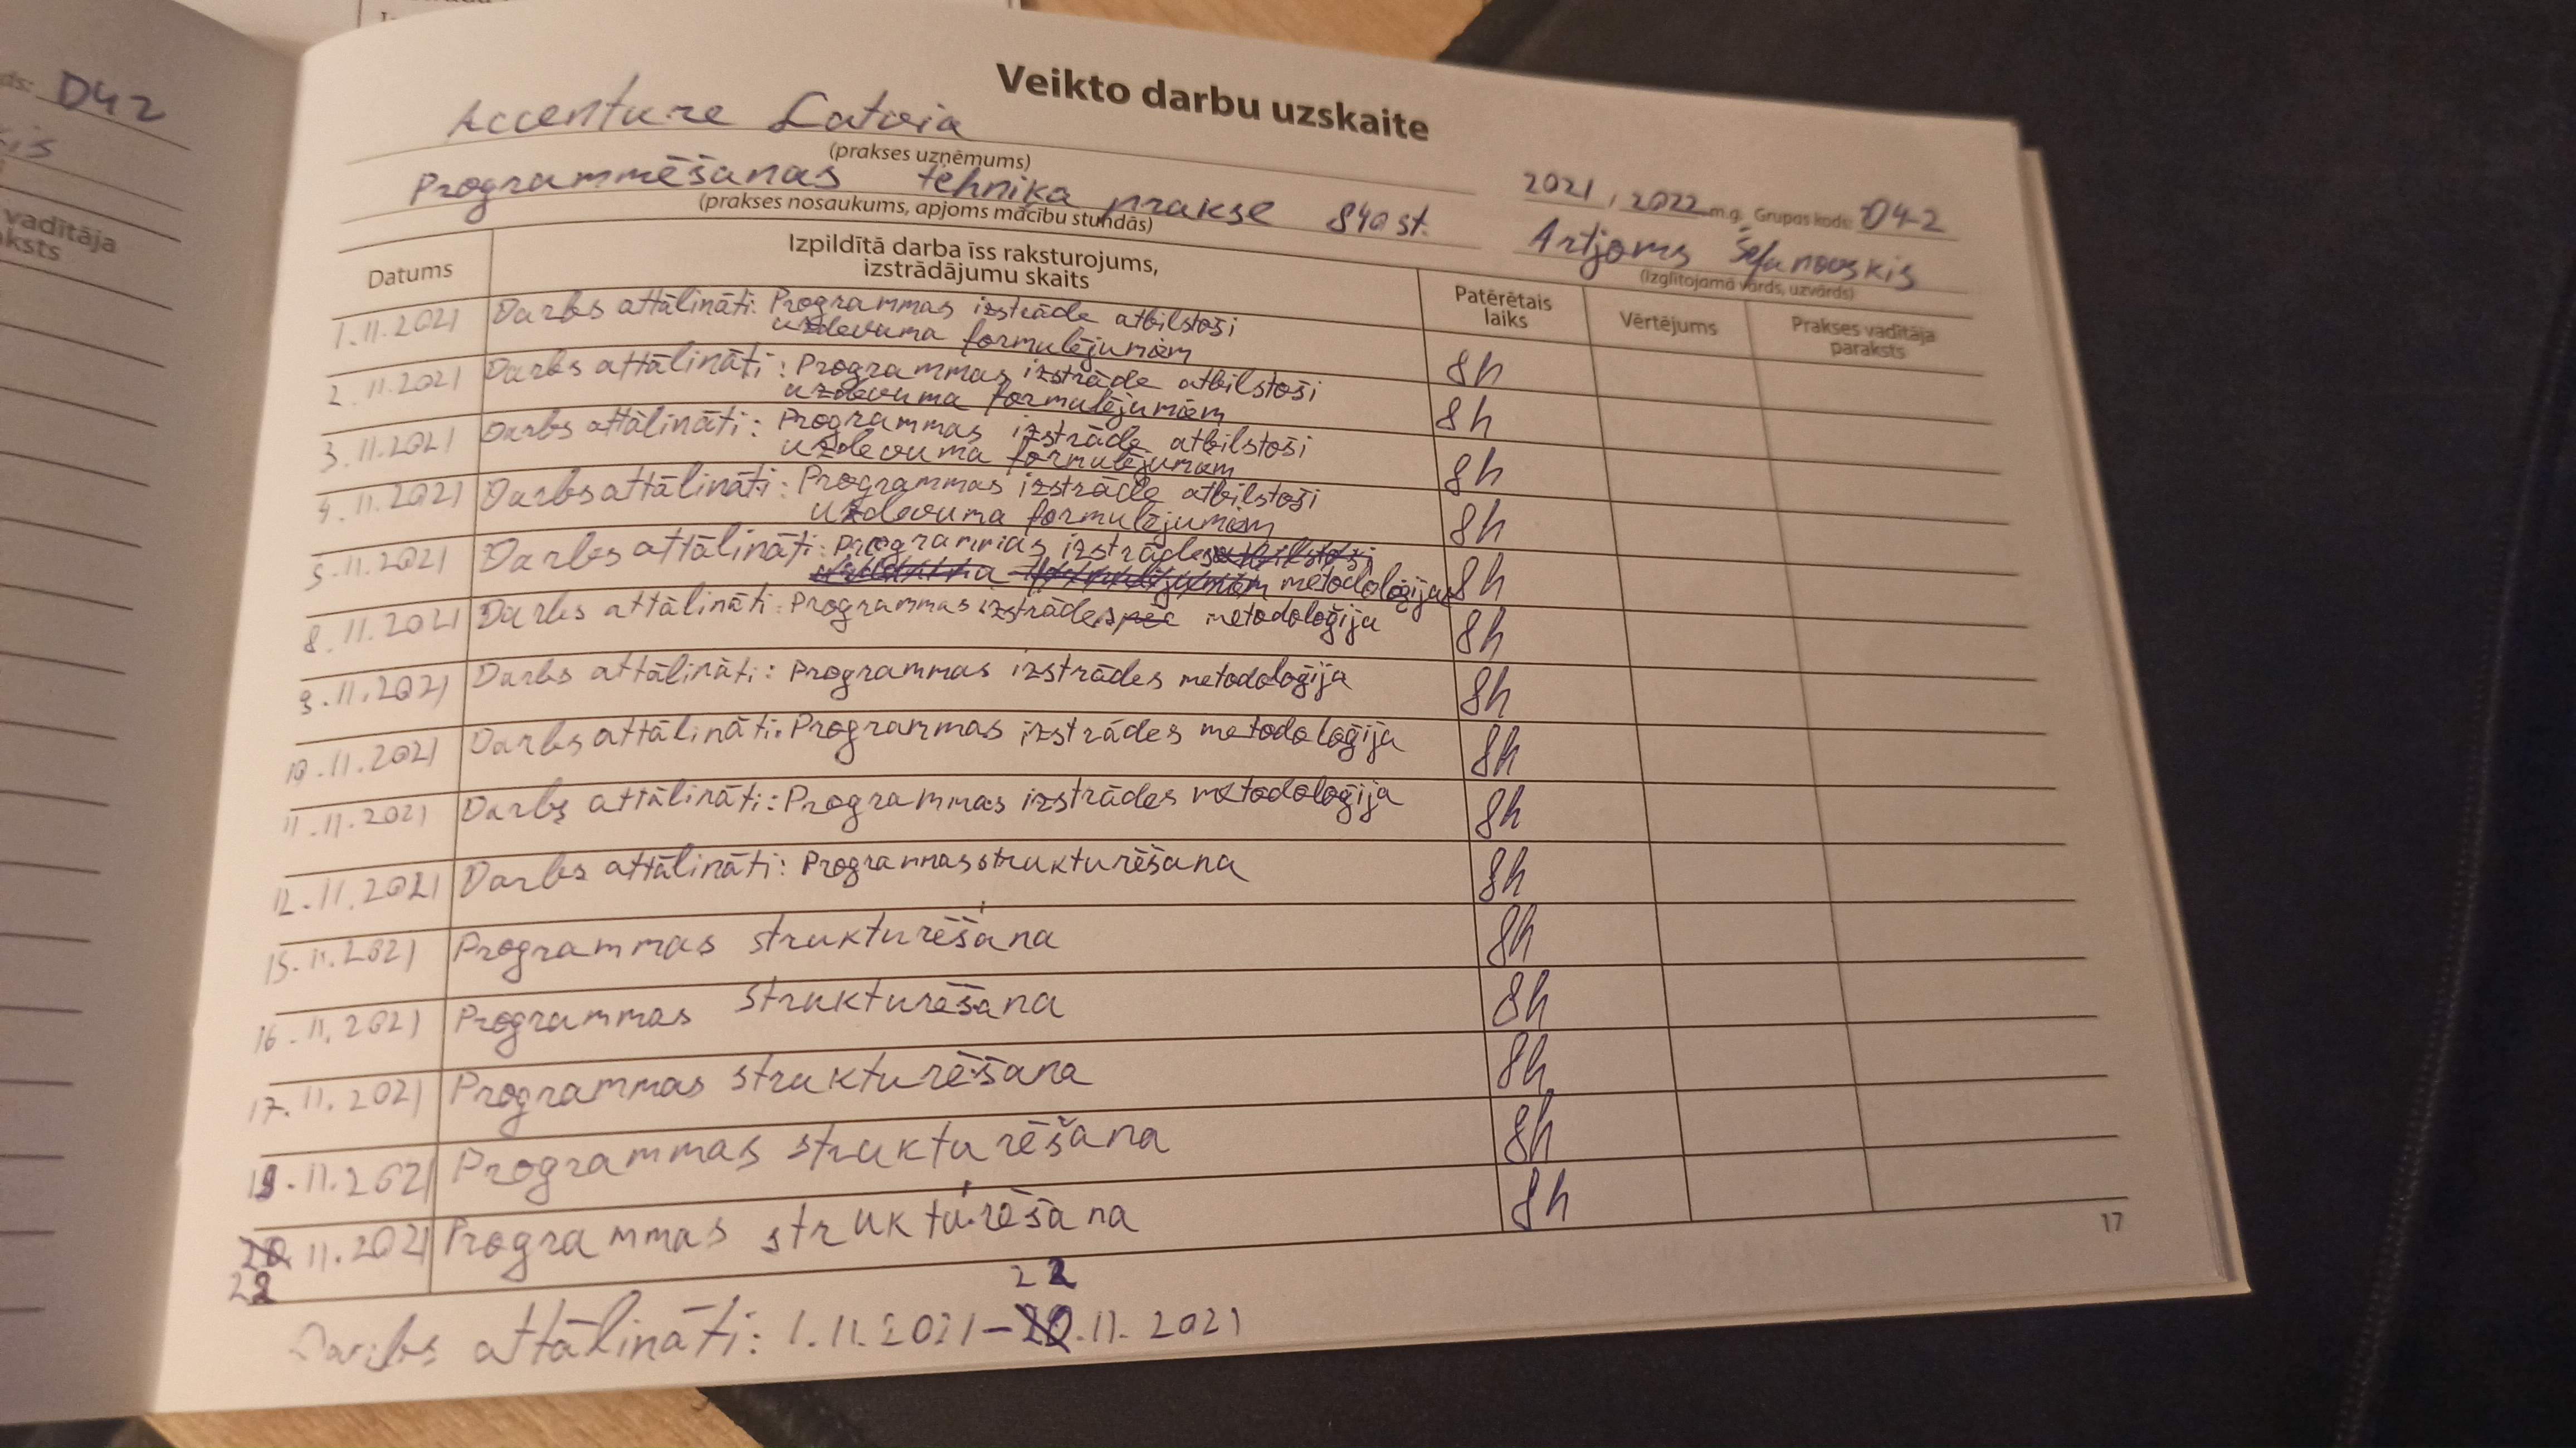 D42
vadītāja
Veikto darbu uzskaite
Accenture Latvia
(prakses uzņēmums)
Programmēšanas tehniķa prakse 840 st.
(prakses nosaukums, apjoms mācību stundās)
2021, 2022 m.g. Grupas kods: D4-2
Artjoms
(Izglītojamā vārds, uzvārds)
Datums
Izpildītā darba īss raksturojums,
izstrādājumu skaits
Patērētais
laiks
Vērtējums
Prakses vadītāja
paraksts
1.11.2021 Darbs attālināti: Programmas izstrāde atbilstoši
uzdevuma formulējumiem 8h
2.11.2021 Darbs attālināti: Programmas izstrāde atbilstoši
uzdevuma formulējumiem 8h
3.11.2021 Darbs attālināti: Programmas izstrāde atbilstoši
uzdevuma formulējumiem 8h
4.11.2021 Darbs attālināti: Programmas izstrāde atbilstoši
uzdevuma formulējumiem 8h
5.11.2021 Darbs attālināti: programmas izstrādes
metodoloģija 8h
8.11.2021 Darbs attālināti: Programmas izstrādes metodoloģija 8h
9.11.2021 Darbs attālināti: Programmas izstrādes metodoloģija 8h
10.11.2021 Darbs attālināti: Programmas izstrādes metodoloģija 8h
11.11.2021 Darbs attālināti: Programmas izstrādes metodoloģija 8h
12.11.2021 Darbs attālināti: Programmas strukturēšana 8h
15.11.2021 Programmas strukturēšana 8h
16.11.2021 Programmas strukturēšana 8h
17.11.2021 Programmas strukturēšana 8h
19.11.2021 Programmas strukturēšana 8h
20.11.2021 Programmas strukturēšana 8h
22
22
Darbs attālināti: 1.11.2021 – 20.11.2021
17